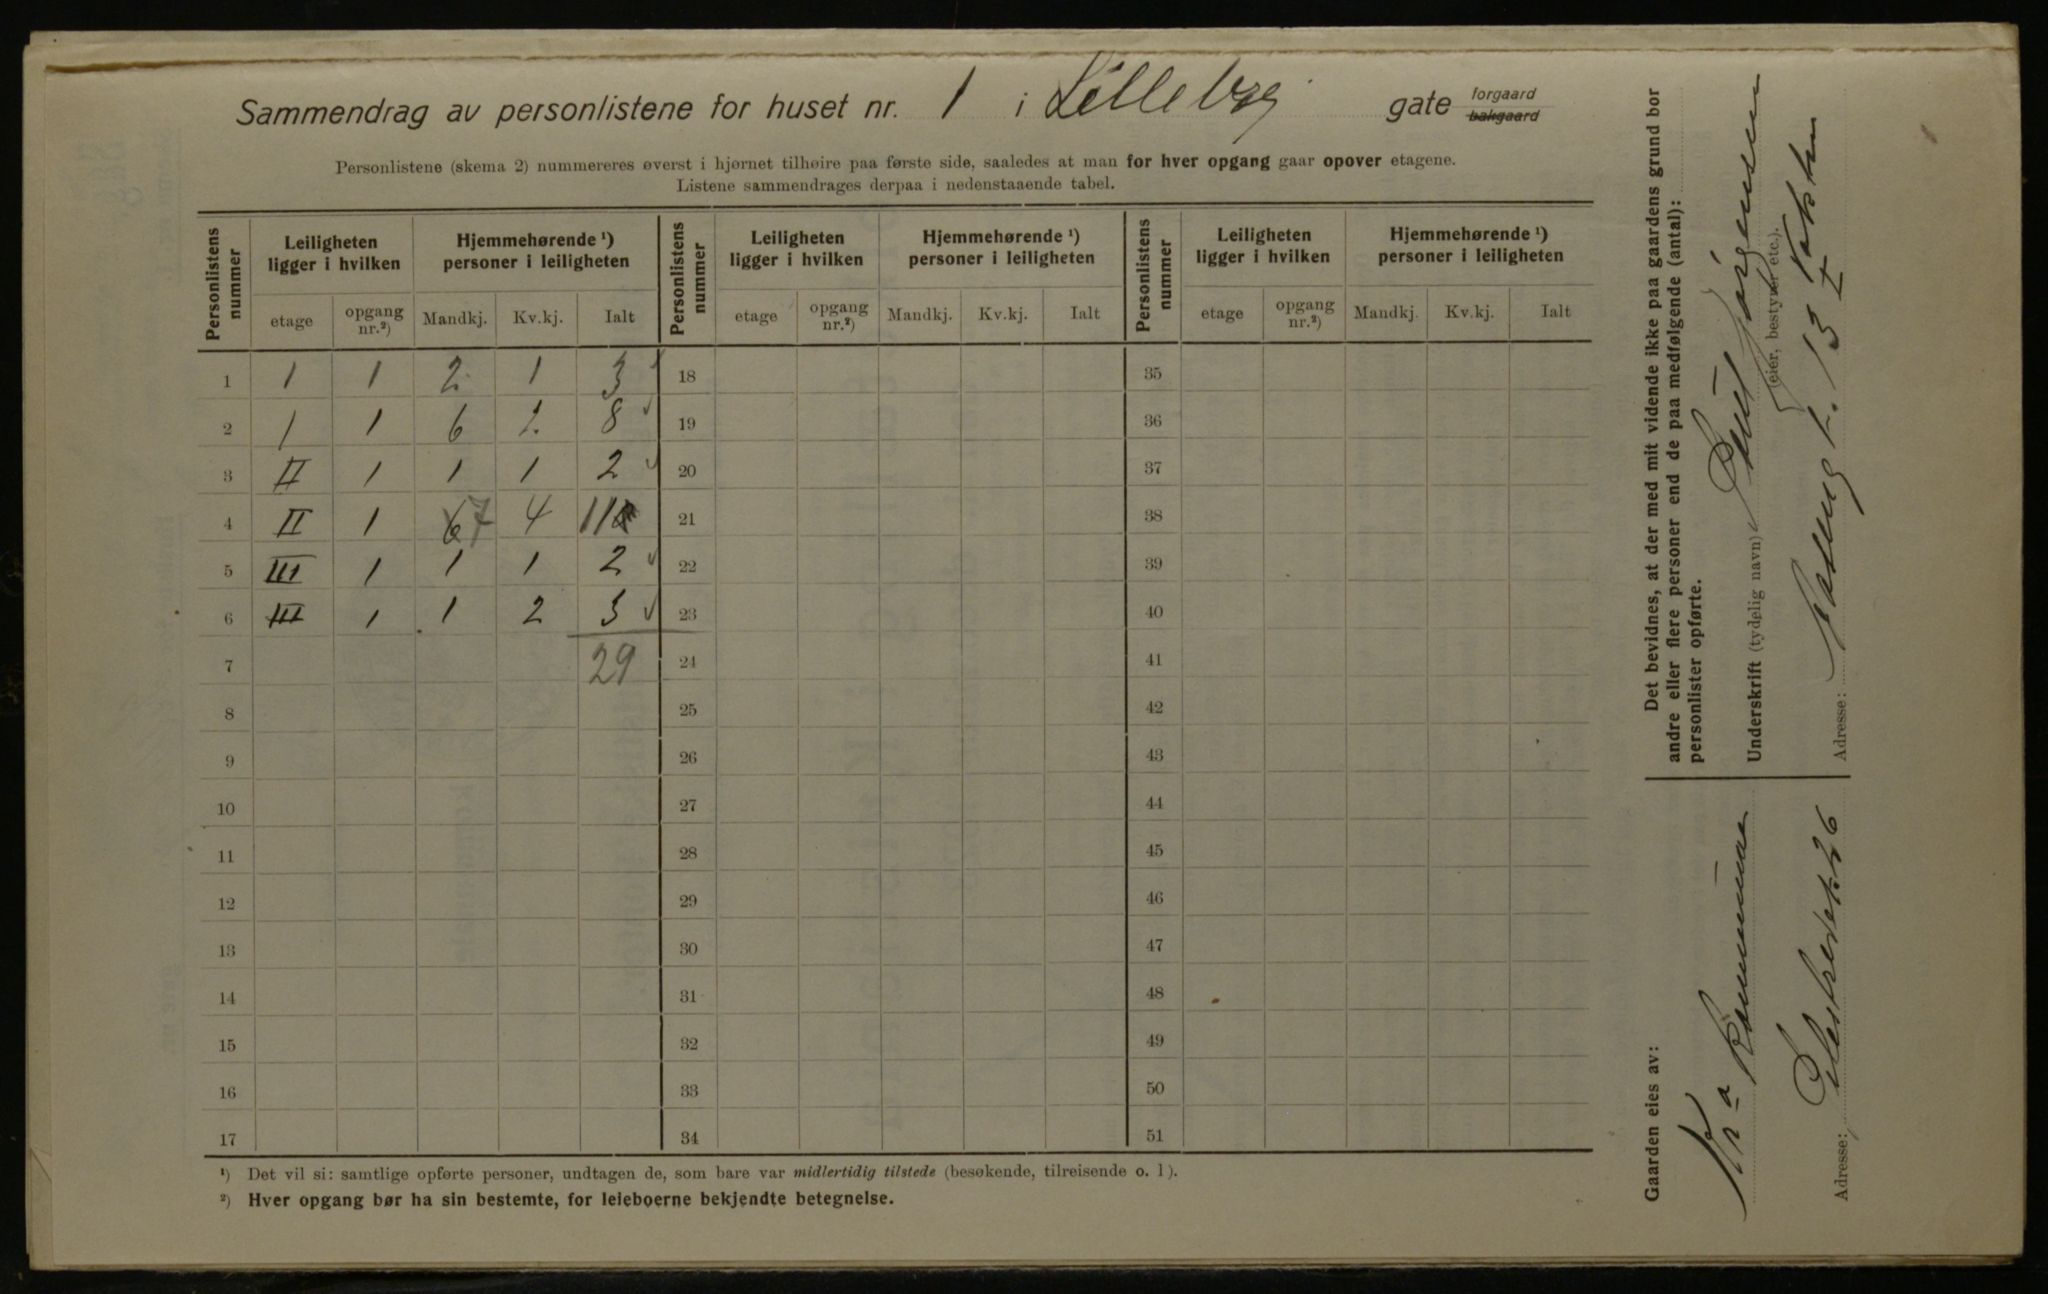 Sammendrag av personlistene for huset nr. 1 i Lilleborg gate forgaard bakgaard
Personlistene (skema 2) nummereres øverst i hjørnet tilhøire paa første side, saaledes at man for hver opgang gaar opover etagene.
Listene sammendrages derpaa i nedenstaaende tabel.
Personlistens nummer | Leiligheten ligger i hvilken | Hjemmehørende ¹) personer i leiligheten | Personlistens nummer | Leiligheten ligger i hvilken | Hjemmehørende ¹) personer i leiligheten | Personlistens nummer | Leiligheten ligger i hvilken | Hjemmehørende ¹) personer i leiligheten
etage | opgang nr.²) | Mandkj. | Kv.kj. | Ialt | etage | opgang nr.²) | Mandkj. | Kv.kj. | Ialt | etage | opgang nr.²) | Mandkj. | Kv.kj. | Ialt
1 | 1 | 1 | 2 | 1 | 3 | 18 | 35
2 | 1 | 1 | 6 | 2 | 8 | 19 | 36
3 | II | 1 | 1 | 1 | 2 | 20 | 37
4 | II | 1 | 6 7 | 4 | 11 | 21 | 38
5 | III | 1 | 1 | 1 | 2 | 22 | 39
6 | III | 1 | 1 | 2 | 3 | 23 | 40
7 | 29 | 24 | 41
8 | 25 | 42
9 | 26 | 43
10 | 27 | 44
11 | 28 | 45
12 | 29 | 46
13 | 30 | 47
14 | 31 | 48
15 | 32 | 49
16 | 33 | 50
17 | 34 | 51
¹) Det vil si: samtlige opførte personer, undtagen de, som bare var midlertidig tilstede (besøkende, tilreisende o. l).
²) Hver opgang bør ha sin bestemte, for leieboerne bekjendte betegnelse.
Det bevidnes, at der med mit vidende ikke paa gaardens grund bor
andre eller flere personer end de paa medfølgende (antal):
personlister opførte.
Underskrift (tydelig navn) Jørgensen
(eier, bestyrer etc.).
Adresse: 13 I
Gaarden eies av:
Kra Kommune
Adresse: 26